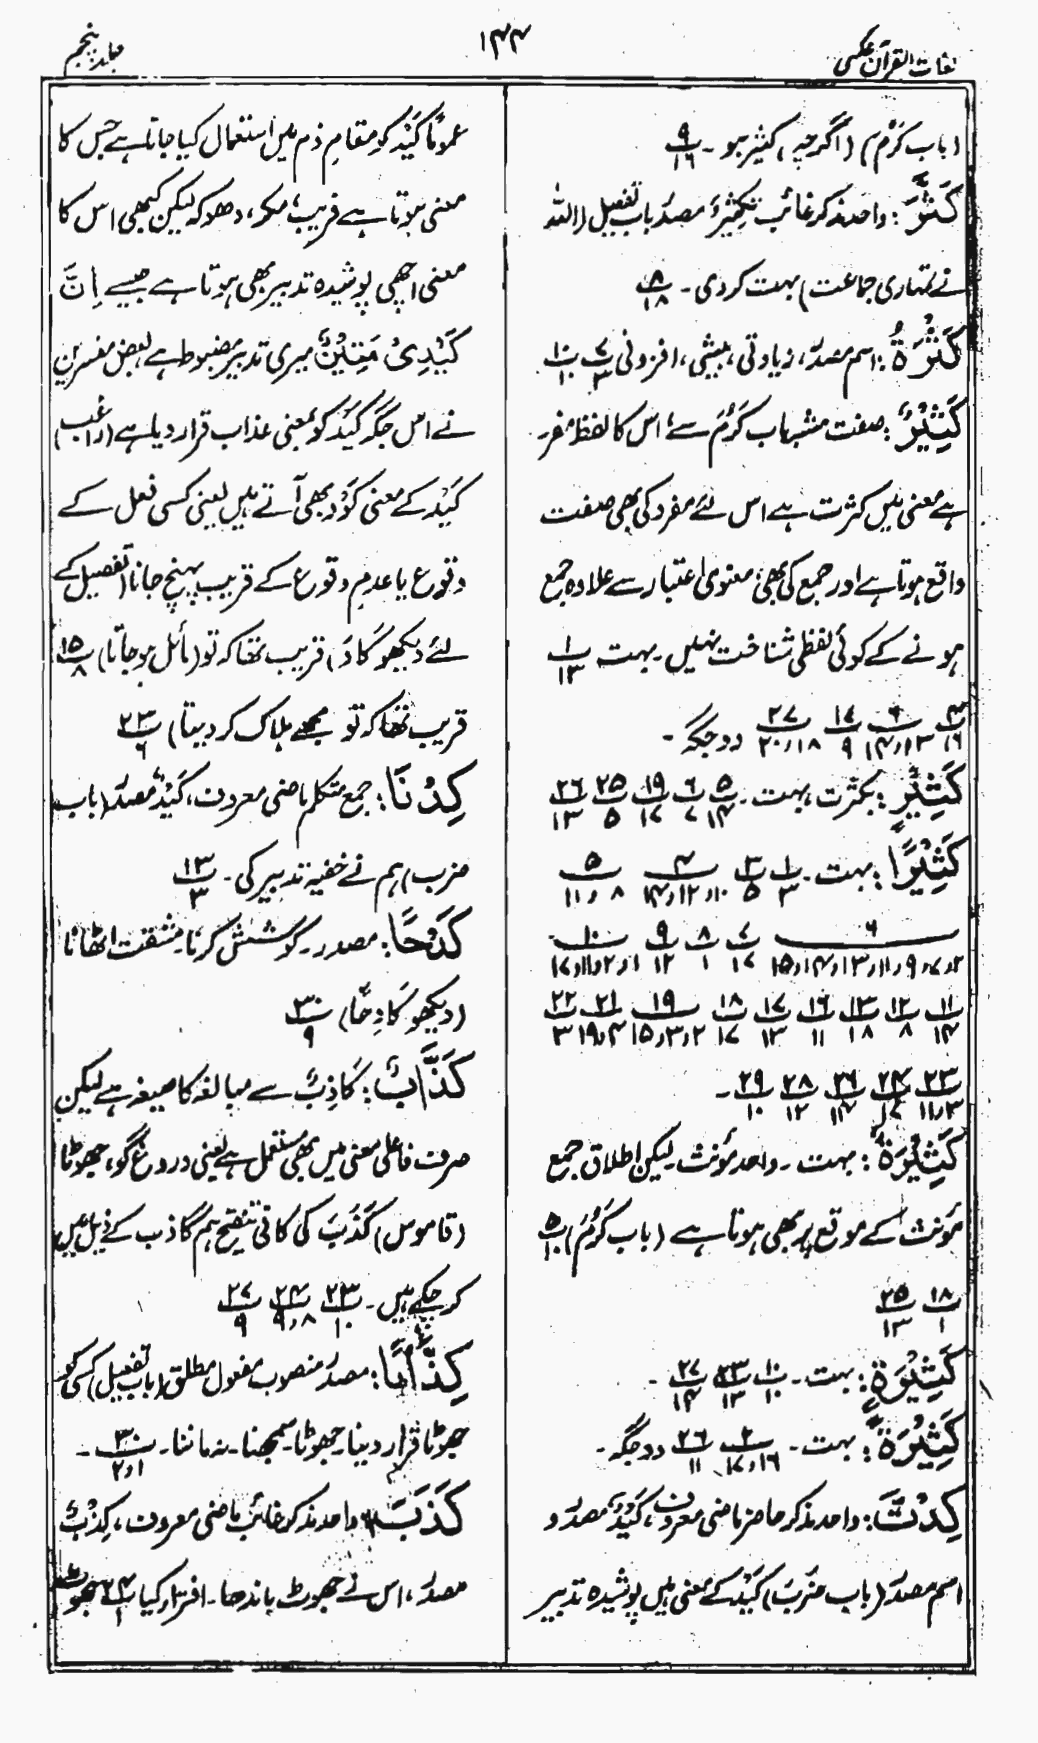 لغات القرآن عکسی
۱۴۴
جلد پنجم
(باب کَرُمَ) (اگرچہ) کثیر ہو۔ ۹/۱۶
کَثَّرَ: واحد مذکر غائب تکثیرٌ مصدر باب تفعیل (اللہ
نے تمہاری جماعت) بہت کردی۔ ۸/۱۸
کَثْرَةٌ: اسم مصدر، زیادتی، بیشی، افزونی ۷/۳ ۱۰/۱۰
کَثِیْرٌ: صفت مشبہ باب کَرُمَ سے اس کا لفظ مفرد
ہے معنی میں کثرت ہے اس لئے مفرد کی بھی صفت
واقع ہوتا ہے اور جمع کی بھی، معنوی اعتبار سے علاوہ جمع
ہونے کے کوئی لفظی شناخت نہیں۔ بہت ۱/۱۳
۴/۱۶ ۶/۱۳،۱۴ ۱۷/۹ ۲۷/۱۸،۲۰ دو جگہ۔
کَثِیْرٍ: بکثرت بہت۔ ۵/۱۴ ۶/۷ ۱۹/۱۷ ۲۵/۵ ۲۶/۱۳
کَثِیْرًا: بہت۔ ۱/۳ ۳/۵ ۴/۱۰،۱۲،۱۴ ۵/۸،۱۱
۶/۲،۷،۹،۱۱،۱۳،۱۴،۱۵ ۷/۱۷ ۸/۱ ۹/۱۲ ۱۰/۱،۲،۱۱،۱۷
۱۱/۱۴ ۱۲/۸ ۱۳/۱۸ ۱۶/۱۱ ۱۷/۱۳ ۱۸/۱۷ ۱۹/۲،۳،۱۵ ۲۱/۴،۱۹ ۲۲/۳
۲۳/۳،۱۱ ۲۴/۱۷ ۲۶/۱۴ ۲۸/۱۲ ۲۹/۱۰۔
کَثِیْرَةٌ: بہت۔ واحد مؤنث۔ لیکن اطلاق جمع
مؤنث کے موقع پر بھی ہوتا ہے (باب کَرُمَ) ۵/۱۰
۱۸/۱ ۲۵/۱۳
کَثِیْرَةٍ: بہت۔ ۱۰/۱۰ ۲۳/۱۳ ۲۷/۱۴۔
کَثِیْرَةً: بہت۔ ۲/۱۶،۱۷ ۲۶/۱۱ دو جگہ۔
کِدْتَّ: واحد مذکر حاضر ماضی معروف، کَیْدٌ مصدر و
اسم مصدر (باب ضَرَبَ) کَیْدٌ کے معنی ہیں پوشیدہ تدبیر
عموماً کَیْد کو مقامِ ذم میں استعمال کیا جاتا ہے جس کا
معنی ہوتا ہے فریب، مکر، دھوکہ لیکن کبھی اس کا
معنی اچھی پوشیدہ تدبیر بھی ہوتا ہے جیسے اِنَّ
کَیْدِیْ مَتِیْنٌ میری تدبیر مضبوط ہے بعض مفسرین
نے اس جگہ کَیْد کو بمعنی عذاب قرار دیا ہے (راغب)
کَیْد کے معنی کَوْد بھی آتے ہیں یعنی کسی فعل کے
وقوع یا عدم وقوع کے قریب پہنچ جانا (تفصیل کے
لئے دیکھو کَادَ) قریب تھا کہ تو (مائل ہو جاتا) ۱۵/۸
قریب تھا کہ تو مجھے ہلاک کر دیتا) ۲۳/۶
کِدْنَا: جمع متکلم ماضی معروف، کَیْدٌ مصدر (باب
ضرب) ہم نے خفیہ تدبیر کی۔ ۱۳/۳
کَدْحًا: مصدر۔ کوشش کرنا۔ مشقت اٹھانا
(دیکھو کَادِحًا) ۳۰/۹
کَذَّابٌ: کَاذِبٌ سے مبالغہ کا صیغہ ہے لیکن
صرف فاعلی معنی میں بھی مستعمل ہے یعنی دروغ گو، جھوٹا
(قاموس) کَذَبَ کی کافی تنقیح ہم کاذب کے ذیل میں
کر چکے ہیں۔ ۲۳/۱۰ ۲۴/۸،۹ ۲۷/۹
کِذَّابًا: مصدر منصوب مفعول مطلق (باب تفعیل) کسی کو
جھوٹا قرار دینا۔ جھوٹا سمجھنا۔ نہ ماننا۔ ۳۰/۱،۲۔
کَذَبَ: واحد مذکر غائب ماضی معروف، کِذْبٌ
مصدر، اس نے جھوٹ باندھا۔ افترار کیا ۲۴/۱ جھوٹ